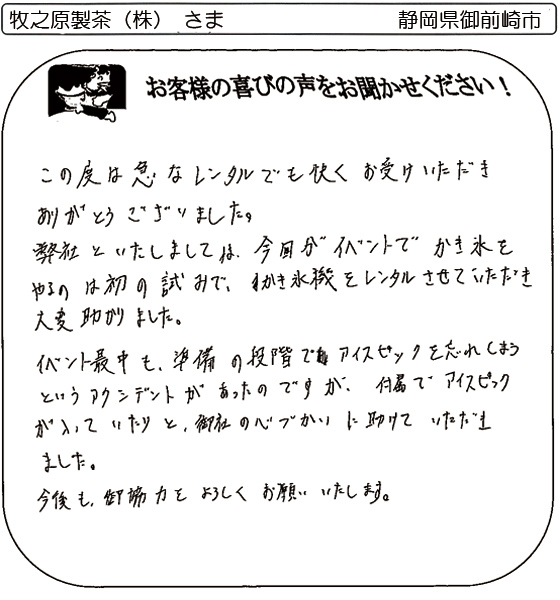 牧之原製茶（株） さま 静岡県御前崎市
お客様の喜びの声をお聞かせください！
この度は急なレンタルでも快くお受けいただき
ありがとうございました。
弊社といたしましては、今回がイベントでかき氷を
やるのは初の試みで、かき氷機をレンタルさせていただき
大変助かりました。
イベント最中も、準備の段階でアイスピックを忘れてしまう
というアクシデントがあったのですが、付属でアイスピック
が入っていたりと、御社の心づかいに助けていただき
ました。
今後も、御協力をよろしくお願いいたします。